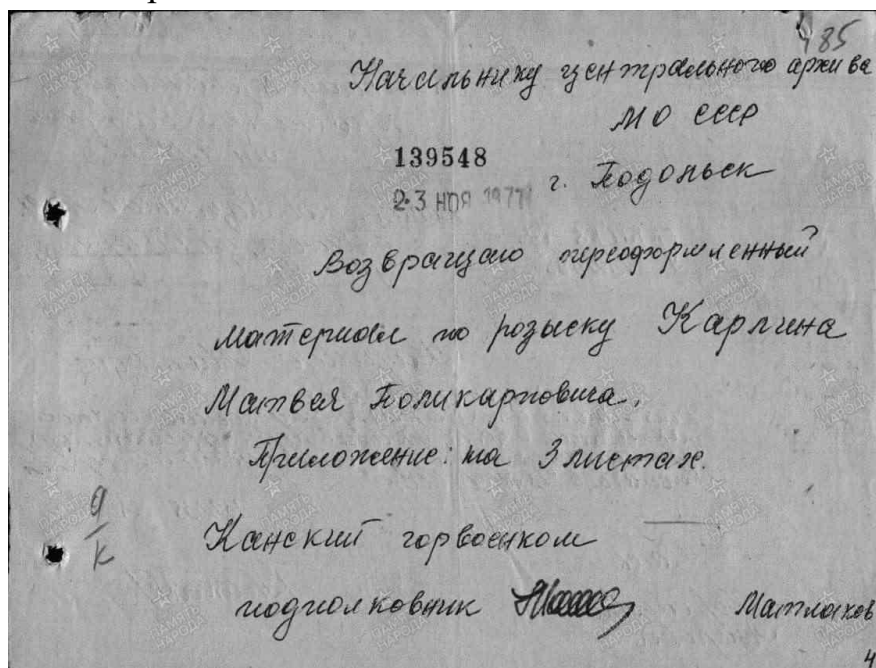 485
Начальнику центрального архива
МО СССР
139548
23 НОЯ 1977
г. Подольск
Возвращаю переоформленный
материал по розыску Карпина
Матвея Поликарповича.
Приложение: на 3 листах.
Канский горвоенком
подполковник Матлахов
4